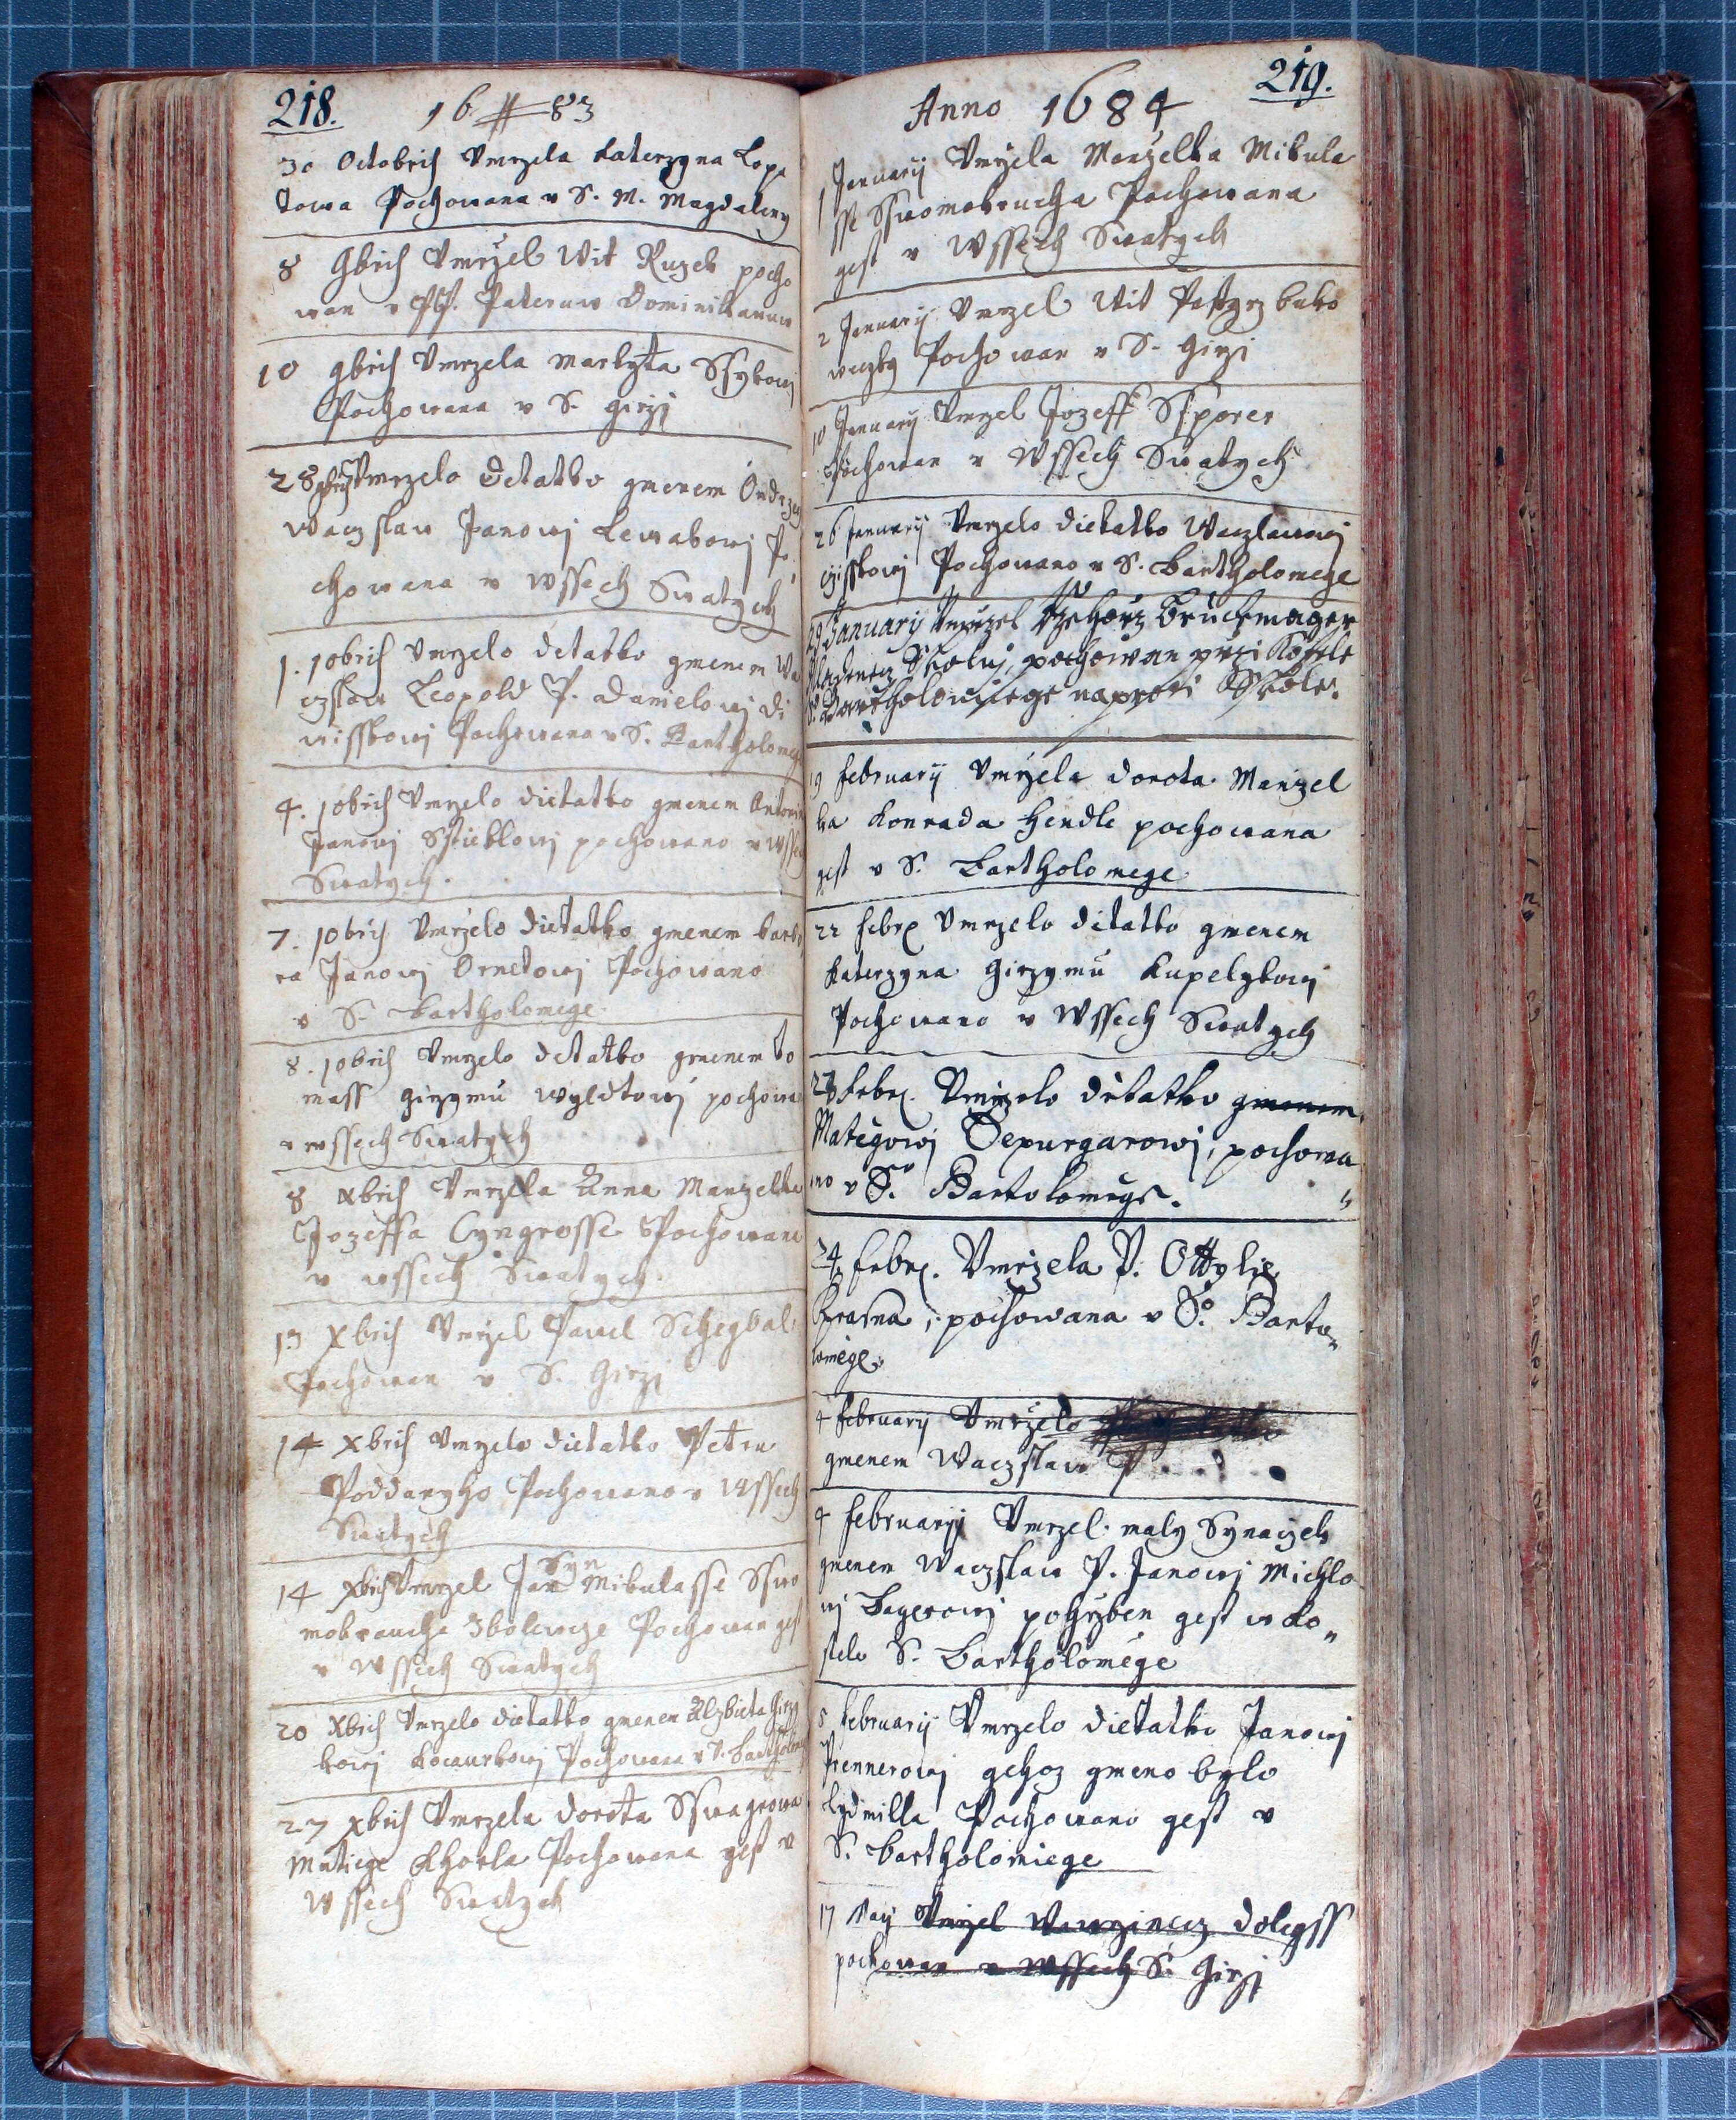 218.
16 83
30 Octobris Vmrzela Katerzyna Lopa
towa Pochowana v S. M. Magdaleny
8 9bris Vmrzel Wit Ruzek pocho
wan v PP. Pateruw Dominikanuw
10 9bris Vmrzela Markyta Ssykowj
Pochowana v S. Girzj
28 9bris Vmrzelo detatko gmenem Ondrzey
Waczslaw Janowj Lewakowj Po
chowana v Wssech Swatych
1. 10bris Vmrzelo detatko gmenem Wa
czslaw Leopold P. Danielowj Di
wisskowj Pochowana v S. Bartholomege
4. 10bris Vmrzelo dietatko gmenem Antonin
Janowj Sstieklowj pochowano v Wssech
Swatych.
7. 10bris Vmrzelo dietatko gmenem barbo
ra Janowj Ornetowj Pochowano
v S. Bartholomege
8. 10bris Vmrzelo detatko gmenem to
mass Girzymu Wyldtowj pochowa
v wssech Swatych
8 Xbris Vmrzela Anna Manzelka
Jozeffa Cyngrosse Pochowana
v wssech Swatych
13 Xbris Vmrzel Pawel Schegbal
Pochowan v S. Girzj
14 Xbris Vmrzelo dietatko Petru
Poddanyho Pochowano v Wssech
Swatych
14 Xbris Vmrzel Jan Syn Mikulasse Sswo
mobraucha Zbolewcze Pochowan gest
v Wssech Swatych
20 Xbris Vmrzelo dietatko gmenem Alzbieta Girzy
kowj Kocaurkowj Pochowana v S. Bartholome
27 Xbris Vmrzela dorota Sswagrowa
Matiege Khorla Pochowana gest v
Wssech Swatych
219.
Anno 1684
1 Januarij Vmrzela Manzelka Mikula
sse Sswomobraucha Pochowana
gest v Wssech Swatych
2 Januarij Vmrzel Wit Pastyrz buko
weczky Pochowan v S. Girzi
10 Januarij Vmrzel Jozeff Ssporer
Pochowan v Wssech Swatych
26 Januarij Vmrzelo dietatko Waczlawowj
czisskowj Pochowano v S. Bartholomege
29 Januarij Vmrzel Rzehorz Bruckmager
Mladenecz Skolnj, pochowan przi Kostele
S. Bartholomiege naproti Sskole.
19 februarij Vmrzela dorota Manzel
ka Konrada Hendle pochowana
gest v S. Bartholomege
22 febr. Vmrzelo ditatko gmenem
Katerzyna Girzymu Kupelykowj
Pochowano v Wssech Swatych
27 Febr. Vmrzelo ditatko gmenem
Mategowj Depurgarowj, pochowa
no v S. Bartolomege.
24 Febr. Vmrzela P. Ottylie
Krasna, pochowana v S. Barto
lomege.
4 februarij Vmrzelo
gmenem Waczslaw P
4 februarij Vmrzel maly Synaczek
gmenem Waczslaw P. Janowj Michlo
wj Bayerowj pohrzben gest w Ko
stele S. Bartholomege
8 februarij Vmrzelo dietatko Janowj
Prennerowj gehoz gmeno bylo
Lydmilla Pochowano gest v
S. Bartholomiege
17 May Vmrzel Wawrzinecz Dolegss
pochowan v Wssech S. Girzj